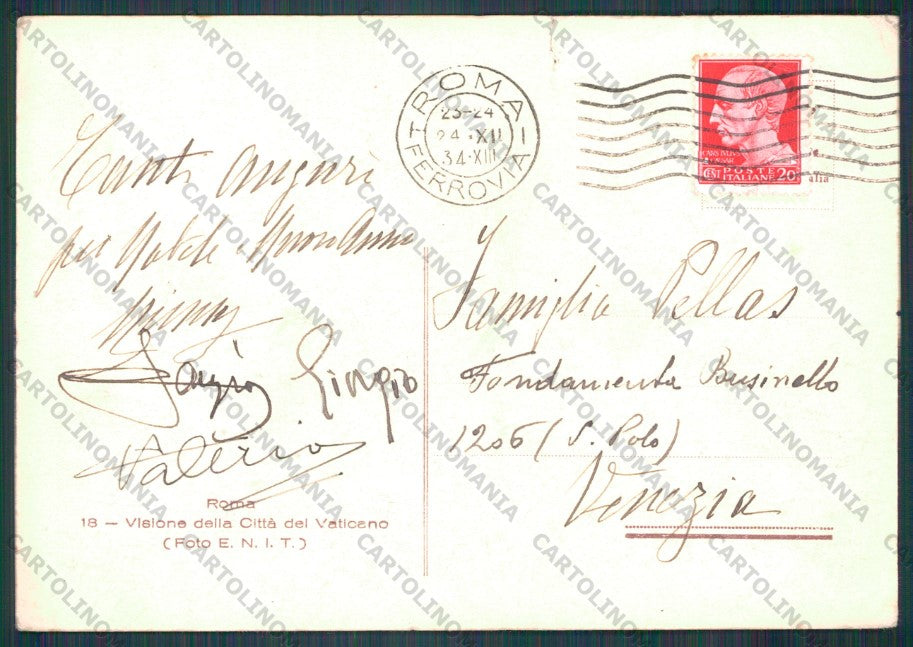 Tanti auguri
per Natale e Buon Anno
Giorgio
Valerio
Roma
18 — Visione della Città del Vaticano
(Foto E. N. I. T.)
ROMA
FERROVIA
23-24
24·XII
34·XIII
POSTE
ITALIANE
CENT 20
alia
Famiglia Pellas
Fondamenta Businello
1206 (S. Polo)
Venezia
CARTOLINOMANIA